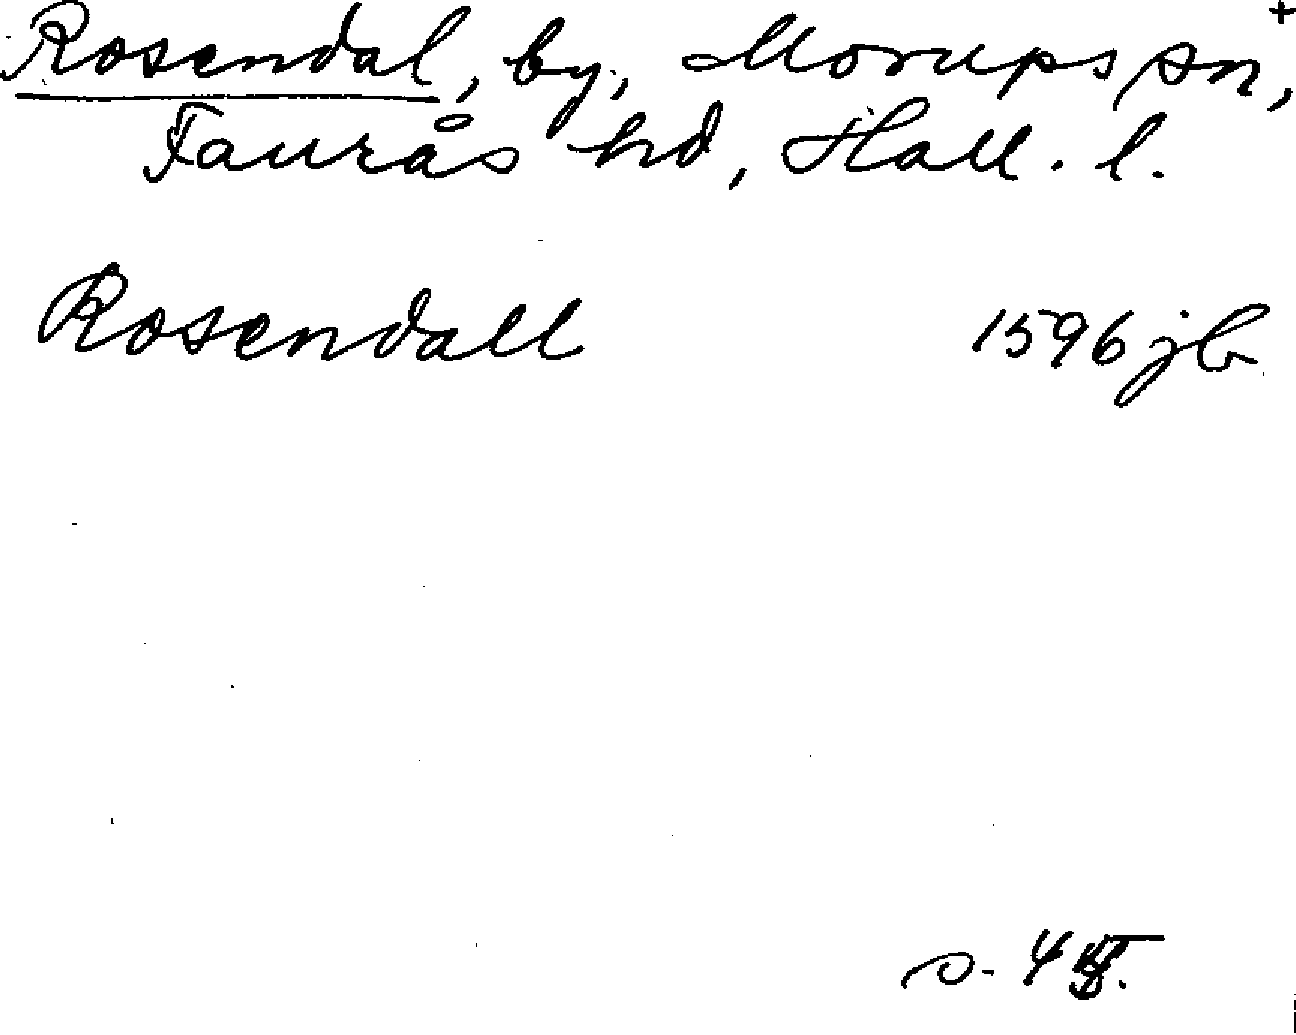 Rosendal, by, Morups sn, +
Faurås hd, Hall. l.
Rosendall 1596 jb
s. 4